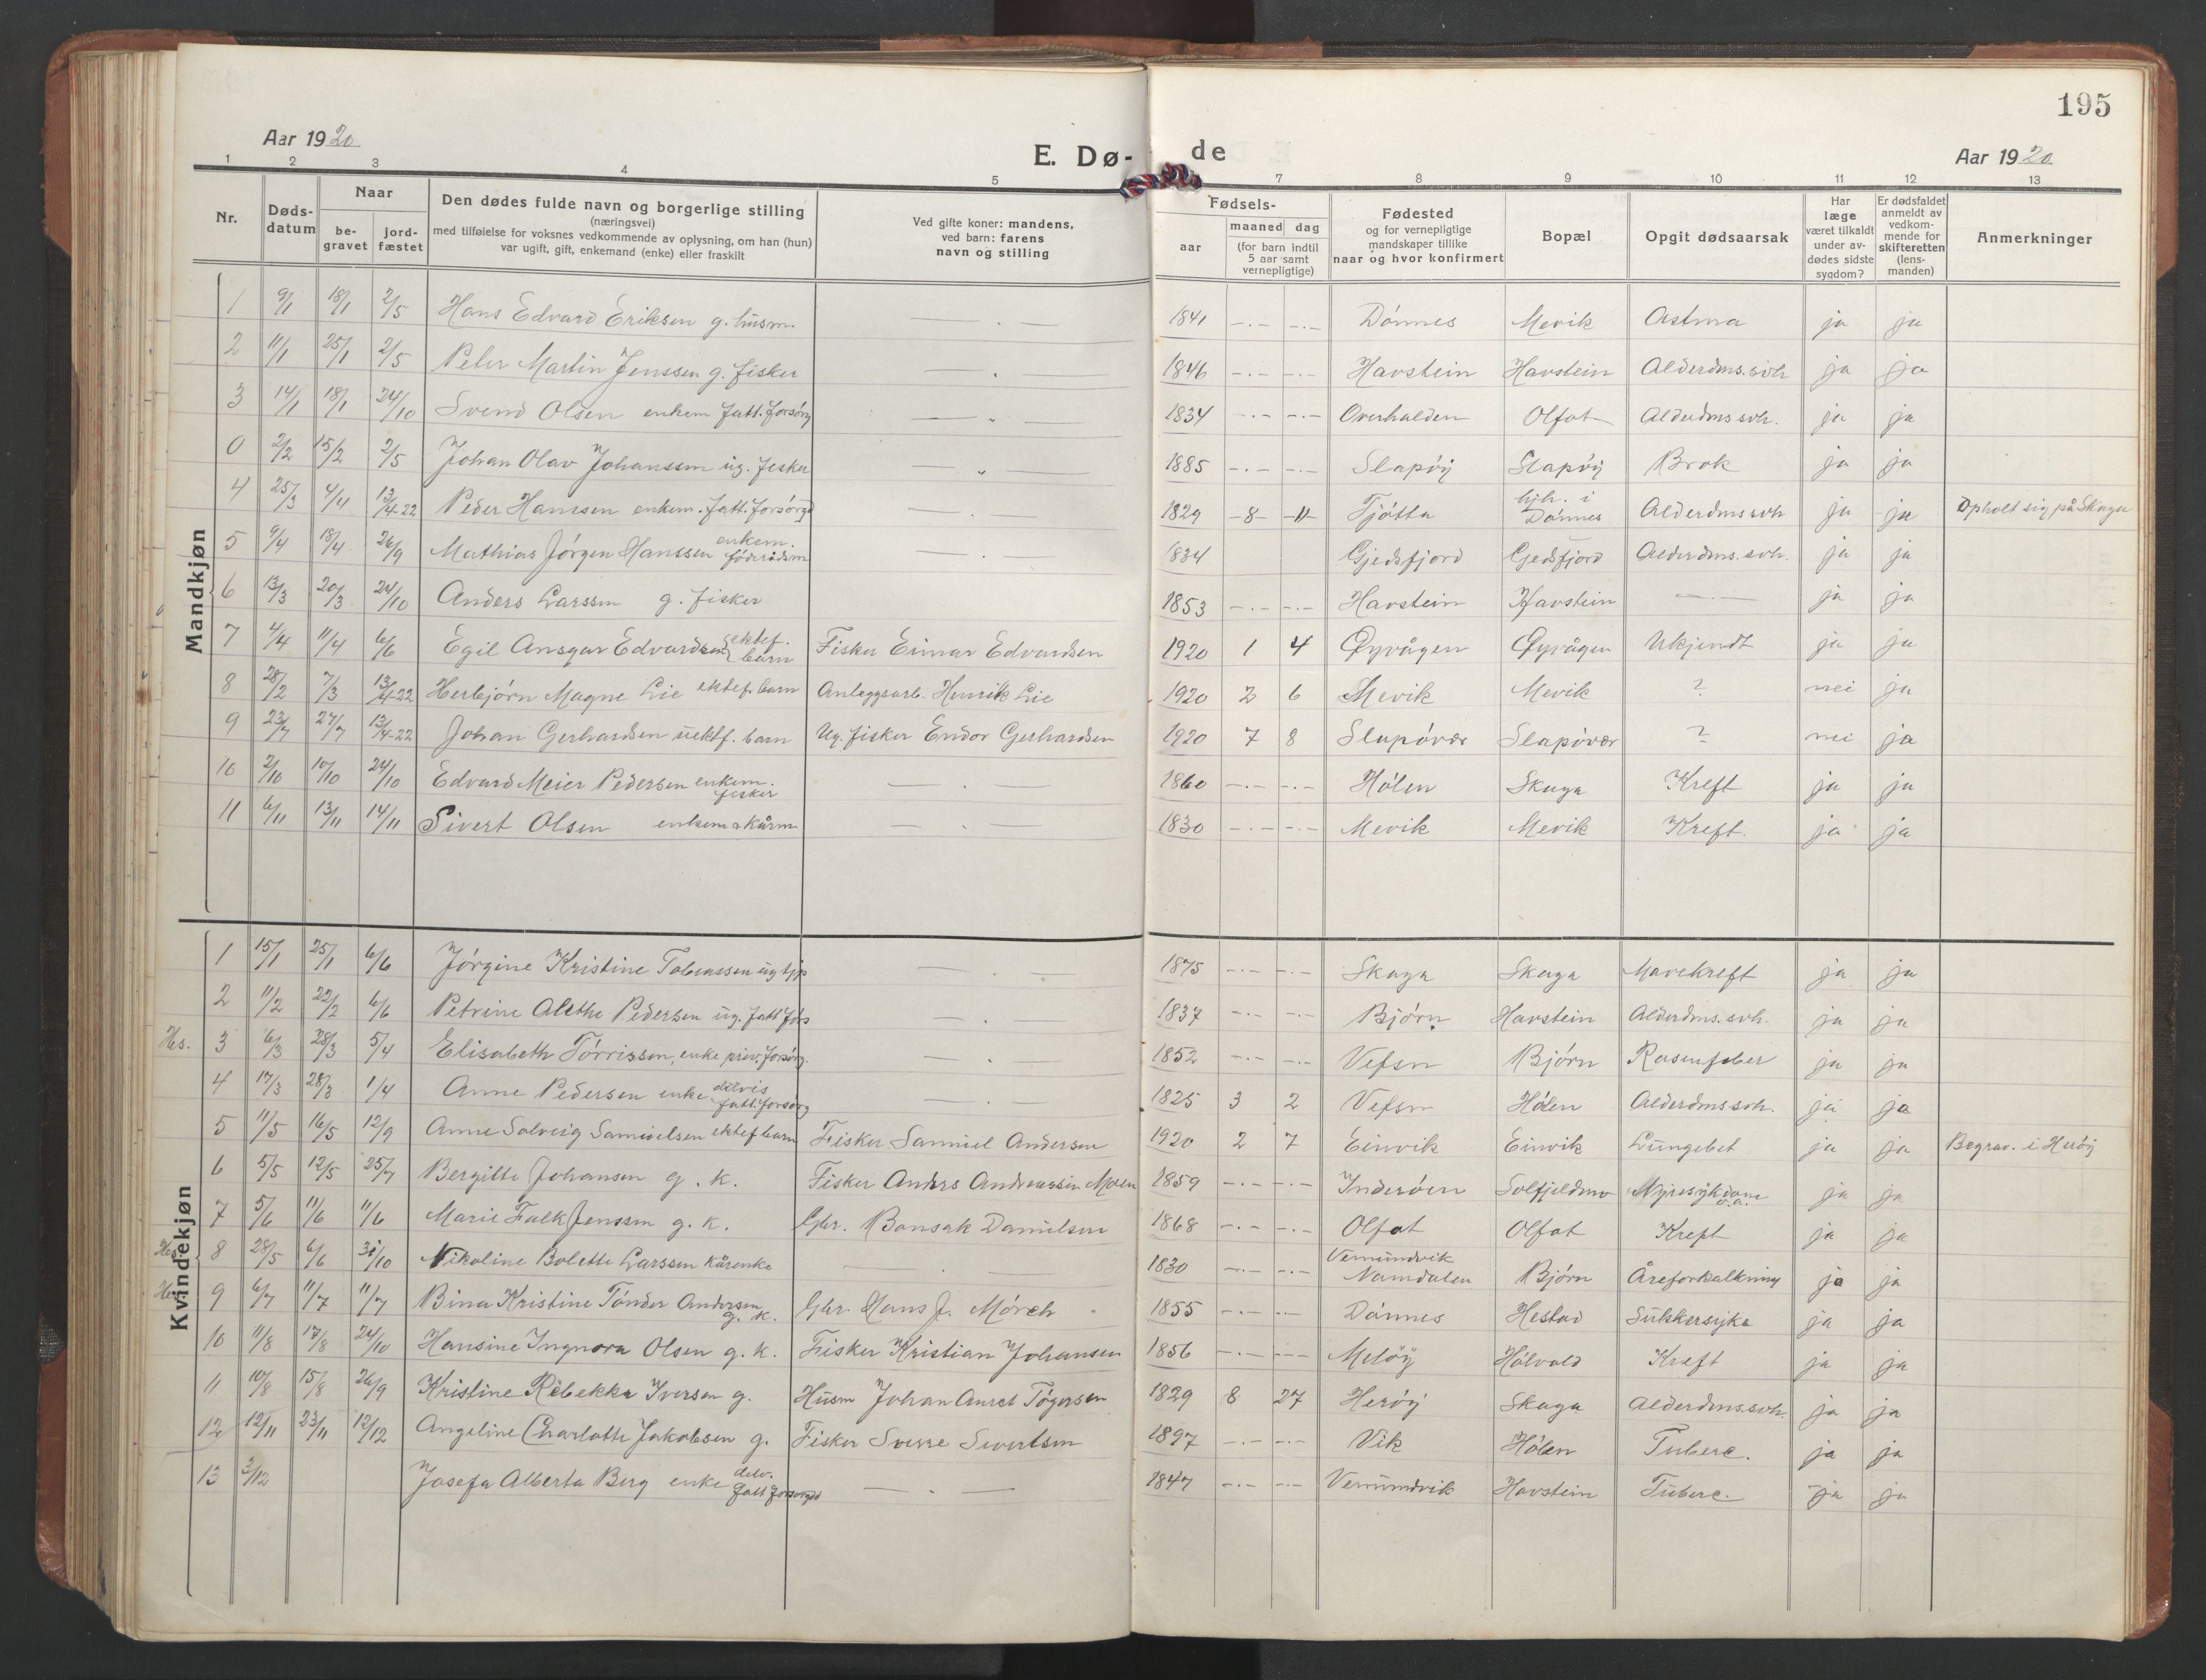 195
Aar 1920
E. Dø- de
Aar 1920
1 2 3 4 5 7 8 9 10 11 12 13
Nr.
Døds-
datum
Naar
be-
gravet
jord-
fæstet
Den dødes fulde navn og borgerlige stilling
(næringsvei)
med tilføielse for voksnes vedkommende av oplysning, om han (hun)
var ugift, gift, enkemand (enke) eller fraskilt
Ved gifte koner: mandens,
ved barn: farens
navn og stilling
Fødsels-
aar
maaned dag
(for barn indtil
5 aar samt
vernepligtige)
Fødested
og for vernepligtige
mandskaper tillike
naar og hvor konfirmert
Bopæl
Opgit dødsaarsak
Har
læge
været tilkaldt
under av-
dødes sidste
sygdom?
Er dødsfaldet
anmeldt av
vedkom-
mende for
skifteretten
(lens-
manden)
Anmerkninger
Mandkjøn
1 9/1 18/1 2/5 Hans Edvard Eriksen g. husm. — . — 1841 -.- -.- Dønnes Mevik Astma ja ja
2 11/1 25/1 2/5 Peter Martin Jenssen g. fisker — . — 1846 -.- -.- Havstein Havstein Alderdms.svh ja ja
3 14/1 18/1 24/10 Svend Olsen enkem fatt. forsørg — " — 1834 -.- -.- Overhalden Olfot Alderdms svh. ja ja
0 2/2 15/2 2/5 Johan Olav Johanssen ug. fisker — " — 1885 -.- -.- Slapøy Slapøy Brok ja ja
4 25/3 4/4 13/4-22 Peder Hanssen enkem. fatt. forsørgd — . — 1829 -8- -11- Tjøtta hjh. i Dønnes Alderdmssvh ja ja Opholt sig på Skaga
5 9/4 18/4 26/9 Mathias Jørgen Hanssen enkem. føderådsm — . — 1834 Gjedsfjord Gjedsfjord Alderdms.svh. ja ja
6 13/3 20/3 24/10 Anders Larssen g. fisker 1853 -.- -.- Havstein Havstein — . — ja ja
7 4/4 11/4 6/6 Egil Ansgar Edvardsen ektef. barn Fisker Einar Edvardsen 1920 1 4 Øyvågen Øyvågen Ukjendt ja ja
8 28/2 7/3 13/4-22 Herbjørn Magne Lie ektef. barn Anleggsarb. Henrik Lie 1920 2 6 Mevik Mevik ? nei ja
9 23/7 27/7 13/4-22 Johan Gerhardsen uektf. barn Ug. fisker Endor Gerhardsen 1920 7 8 Slapøvær Slapøvær ? nei ja
10 2/10 10/10 24/10 Edvard Meier Pedersen enkem. fisker — . — 1860 -.- -.- Hølen Skaga Kreft ja ja
11 6/11 13/11 14/11 Sivert Olsen enkem. kårm — . — 1830 -.- -.- Mevik Mevik Kreft. ja ja
Kvindekjøn
1 15/1 25/1 6/6 Jørgine Kristine Tobiassen ug tjp — . — 1875 -.- -.- Skaga Skaga Mavekreft ja ja
2 11/2 22/2 6/6 Petrine Alethe Pedersen ug. fatt fors — . — 1837 -.- -.- Bjørn Havstein Alderdms. svh. ja ja
Hes. 3 6/3 28/3 5/4 Elisabeth Tørrissen, enke priv. forsørg. — . — 1852 -.- -.- Vefsn Bjørn Rosenfeber ja ja
4 17/3 28/3 1/4 Anne Pedersen enke delvis fatt. forsørg — . — 1825 3 2 Vefsn Hølen Alderdmssvh. ja ja
5 11/5 16/5 12/9 Anne Solveig Samuelsen ektef barn Fisker Samuel Andersen 1920 2 7 Einvik Einvik Lungebet ja ja Begrav. i Herøy
6 5/5 12/5 25/7 Bergitte Johansen g. k. Fisker Anders Andreassen Moen 1859 -.- -.- Inderøen Solfjeldmo Nyresykdom o.a. ja ja
7 5/6 11/6 11/6 Marie Falk Jenssen g. k. Gbr. Bonsak Danielsen 1868 -.- -.- Olfot Olfot Kreft ja ja
Hes. 8 28/5 6/6 31/10 Nikoline Bolette Larssen kårenke — . — 1830 -.- -.- Vemundvik Namdalen Bjørn Åreforkalkning ja ja
Hes. 9 6/7 11/7 11/7 Bina Kristine Tønder Andersen g. k. Gbr. Hans J. Mörch 1855 -.- -.- Dønnes Hestad Sukkersyke ja ja
10 11/8 17/8 24/10 Hansine Ingvora Olsen g. k. Fisker Kristian Johansen 1856 -.- -.- Meløy Hølvold Kreft ja ja
11 10/8 15/8 26/9 Kristine Rebekka Iversen g. Husm Johan Anret Tøgersen 1829 8 27 Herøy Skaga Alderdms.svh. ja ja
12 12/11 23/11 12/12 Angeline Charlotte Jakobsen g. Fisker Sverre Sivertsen 1897 -.- -.- Vik Hølen Tuberc. ja ja
13 3/12 Josefa Alberta Berg enke delv. fatt forsørgd — . — 1847 -.- -.- Vemundvik Havstein Tuberc. ja ja